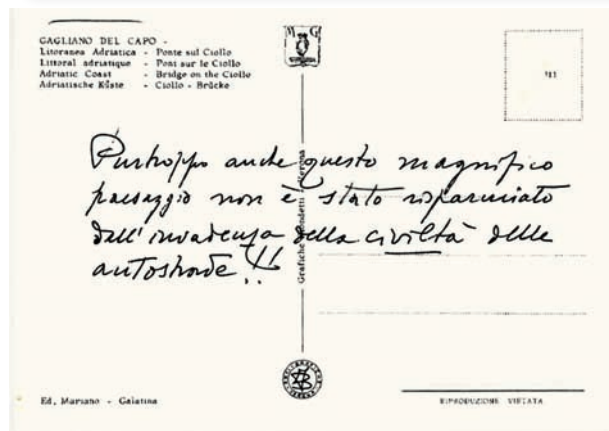 GAGLIANO DEL CAPO -
Litoranea Adriatica - Ponte sul Ciollo
Littoral adriatique - Pont sur le Ciollo
Adriatic Coast - Bridge on the Ciollo
Adriatische Küste - Ciollo - Brücke
M G
Purtroppo anche questo magnifico
paesaggio non è stato risparmiato
dall'invadenza della civiltà delle
autostrade!!
Grafiche
Verona
Ed. Mariano - Galatina
RIPRODUZIONE VIETATA